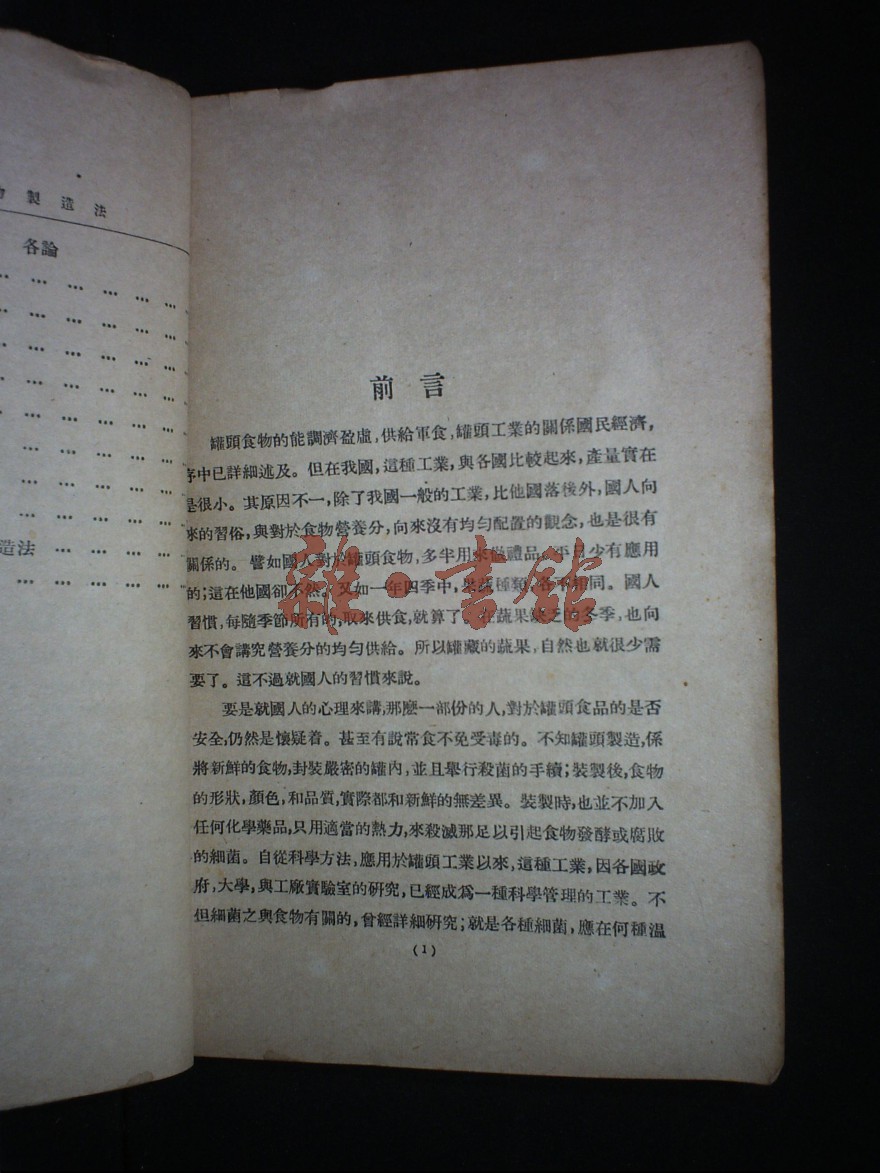 製造法
各論
造法
前言
罐頭食物的能調濟盈虛,供給軍食,罐頭工業的關係國民經濟,
序中已詳細述及。但在我國,這種工業,與各國比較起來,產量實在
是很小。其原因不一,除了我國一般的工業,比他國落後外,國人向
來的習俗,與對於食物營養分,向來沒有均勻配置的觀念,也是很有
關係的。譬如國人對於罐頭食物,多半用來做禮品,平日少有應用
的;這在他國卻不然。又如一年四季中,果蔬種類,各不相同。國人
習慣,每隨季節所有的,取來供食,就算了。在蔬果缺乏的冬季,也向
來不會講究營養分的均勻供給。所以罐藏的蔬果,自然也就很少需
要了。這不過就國人的習慣來說。
要是就國人的心理來講,那麽一部份的人,對於罐頭食品的是否
安全,仍然是懷疑着。甚至有說常食不免受毒的。不知罐頭製造,係
將新鮮的食物,封裝嚴密的罐內,並且舉行殺菌的手續;裝製後,食物
的形狀,顏色,和品質,實際都和新鮮的無差異。裝製時,也並不加入
任何化學藥品,只用適當的熱力,來殺滅那足以引起食物發酵或腐敗
的細菌。自從科學方法,應用於罐頭工業以來,這種工業,因各國政
府,大學,與工廠實驗室的研究,已經成爲一種科學管理的工業。不
但細菌之與食物有關的,曾經詳細研究;就是各種細菌,應在何種溫
(1)
雜·書館